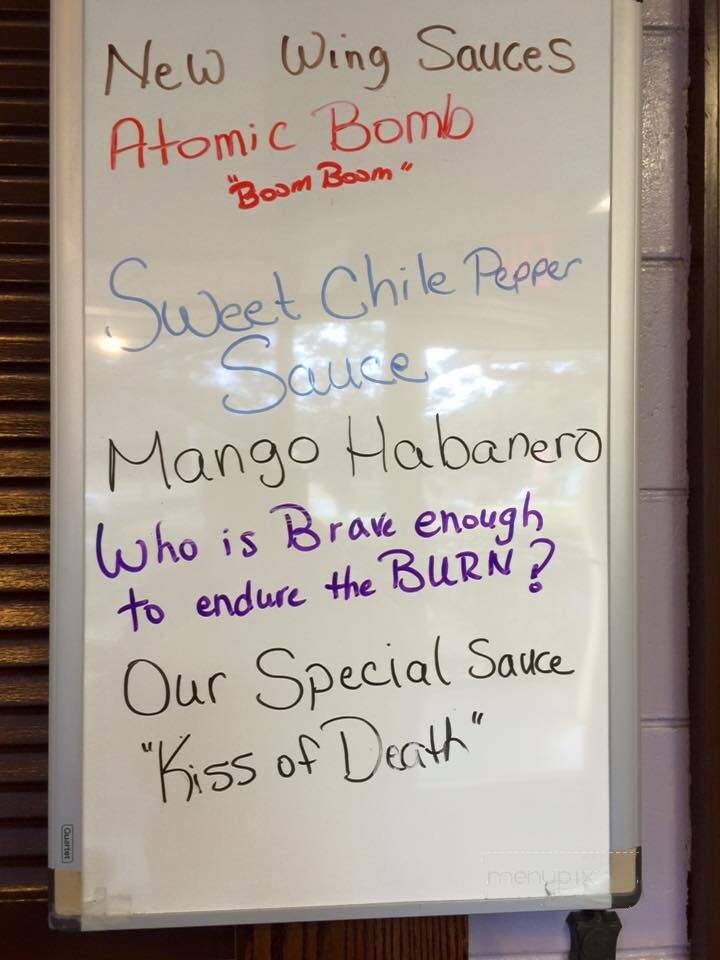 New Wing Sauces
Atomic Bomb
"Boom Boom"
Sweet Chile Pepper
Sauce
Mango Habanero
Who is Brave enough
to endure the BURN?
Our Special Sauce
"Kiss of Death"
Quartet
menupix